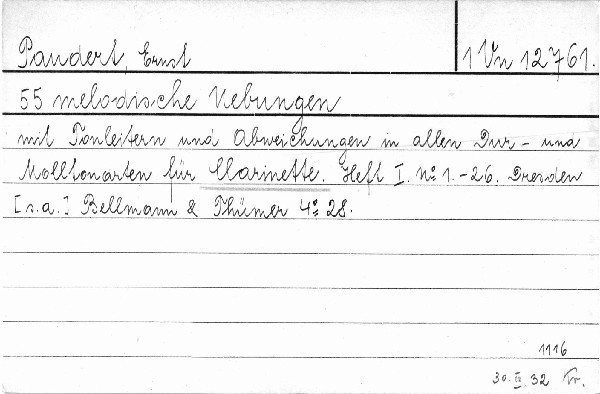 Paudert, Ernst
1 Vn 12761.
55 melodische Uebungen
mit Tonleitern und Abweichungen in allen Dur- und
Molltonarten für Clarinette. Heft I. No 1.-26. Dresden
[s.a.] Bellmann & Thümer 4o 28.
1116
30. IX 32 Tr.